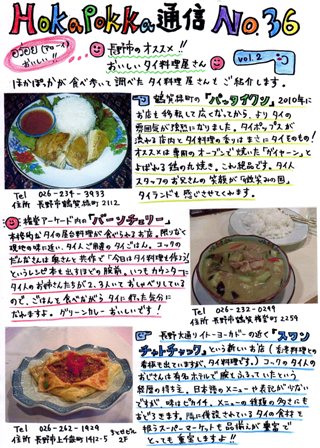 HokaPokka通信 No.36
อร่อย (アロ~イ)
おいしい!!
長野市のオススメ!!
おいしいタイ料理屋さん
vol.2
ほかぽっかが食べ歩って調べたタイ料理屋さんをご紹介します。
鶴賀緑町の「パッタイクワン」2010年に
お店も移転して広くなってから、よりタイの
雰囲気が強烈になりました。タイポップスが
流れる店内とタイ料理の香りはまさにタイそもの!
オススメは専用のオーブンで焼いた「ガイヤーン」と
よばれる鶏の丸焼き。これ絶品です。タイ人
スタッフのお兄さんの笑顔が「微笑みの国」
タイランドも感じさせてくれます。
Tel 026-234-3933
住所 長野市鶴賀緑町2112
権堂アーケード内の「バーンチェリー」
本格的なタイの屋台料理が食べられるお店。限りなく
現地の味に近い、タイ人ご用達のタイごはん。コックの
だんなさんは奥さんと共作で「今日はタイ料理を作ろう!」
というレシピ本も出すほどの腕前。いつもカウンターに
タイ人のお姉さんたちが2、3人いておしゃべりしている
ので、ごはんを食べながらタイに来た気分に
ひたれますよ。グリーンカレーおいしいです!
Tel 026-232-0299
住所 長野市鶴賀権堂町2259
長野大通りイトーヨーカドーの近く「スワン
チャトチャック」という新しいお店(古床料理との
看板も出ていますが、タイ料理です。)コックのタイ人の
おじさんは有名ホテルで腕をふるっていたという
経歴の持ち主。日本語のメニューや表記が少ない
ですが、味はピカイチ。メニューの種類の多さにも
おどろきます。隣に併設されているタイの食材を
扱うスーパーマーケットも品揃えが豊富で
とっても重宝しますよ!!
Tel 026-262-1929
住所 長野市上千歳町1412-5
2F